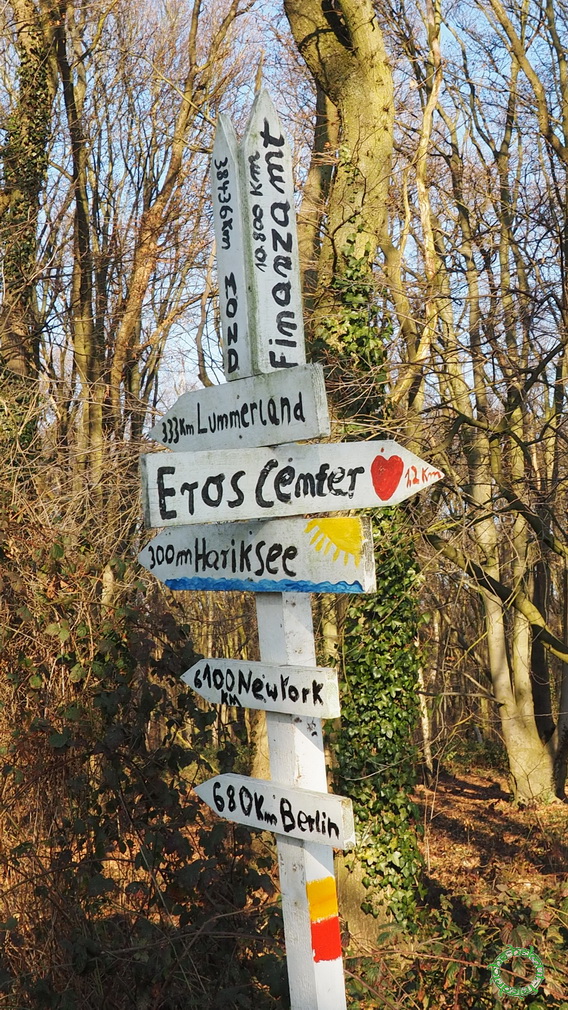 38436Km MOND
10.800 Km
Finanzamt
333Km Lummerland
Eros Center 1,2 Km
300m Hariksee
6100 NewYork
KM
680Km Berlin